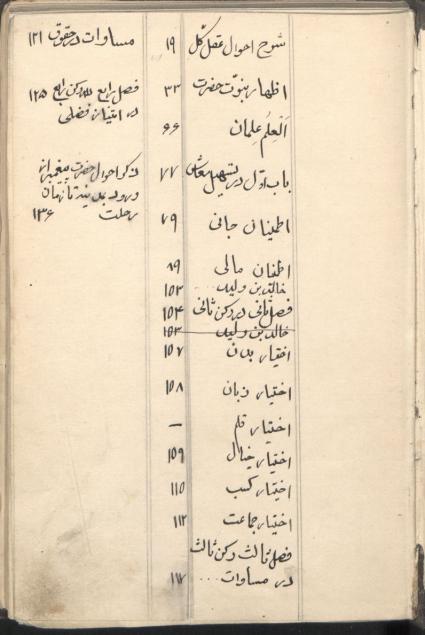 شرح احوال عقل کل ۱۹
اظهار نبوّت حضرت ۳۳
اَلْعِلْمُ علمان ۶۶
باب اوّل در تسهیل معاش ۷۷
اطینان جانی ۷۹
اطنان مالی ۸۹
خالد بن ولید ۱۵۳
فصل ثانی در رکن ثانی ۱۵۴
خالد بن ولید ۱۵۳
اختیار بدن ۱۵۷
اختیار زبان ۱۵۸
اختیار قلم —
اختیار خیال ۱۵۹
اختیار کسب ۱۱۵
اختیار جماعت ۱۱۲
فصل ثالث رکن ثالث
در مساوات ... ۱۱۷
مساوات در حقوق ۱۲۱
فصل رابع رکن رابع ۱۲۵
در امتیاز فضلی
ذکر احوال حضرت پیغمبر از
ورود بمدینه تا زمان
رحلت ۱۳۶